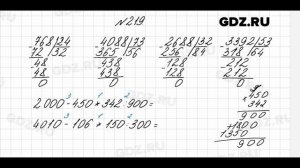 №219
GDZ.RU
768/24 4088/73 2688/32 3392/53
72/32 365/56 236/84 318/64
48 438 128 212
48 438 128 212
0 0 0 0
2 000-450×342 900=
4010-106×150-300=
450
342
900
1350
900